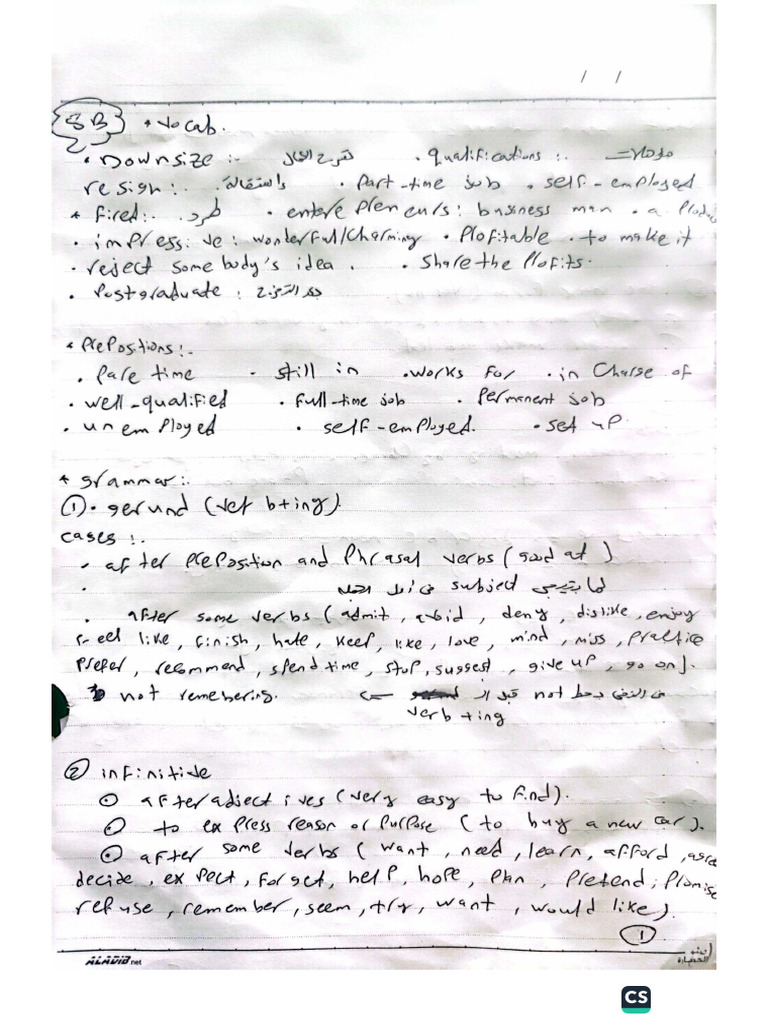 / /
8B * Vocab.
• Downsize :- تسريح العمال • qualifications :. مؤهلات
resign :. واستقالة. • Part-time job • self-employed
* fired :. طرد. • entere Pleneurs : business man • a
• impressive : wonderful/charming • Plofitable • to make it
• reject some body's idea . • Share the Plofits.
• Postgraduate :
* PrePositions :.
• Pare time • still in • works for • in Charge of
• well-qualified • full-time job • Permanent job
• unemployed • self-employed. • set up
* grammar :.
① • gerund (ver b+ing).
cases :.
• after PrePosition and Phrasal verbs (good at)
• لما يتيجي subject في أول الجملة
• after some verbs (admit, avoid, deny, dislike, enjoy
feel like, finish, hate, keep, like, love, mind, miss, practice
Prefer, recommend, spend time, stop, suggest, give up, go on).
not remebering. في النفي بحط not قبل الـ
verb +ing
② infinitive
• after adjectives (very easy to find).
• to exPress reason or PurPose (to buy a new car).
• after some verbs (want, need, learn, afford, agre
decide, exPect, forget, help, hope, Plan, Pretend, Promise
refuse, remember, seem, try, want, would like).
1
ALADIB.net
CS